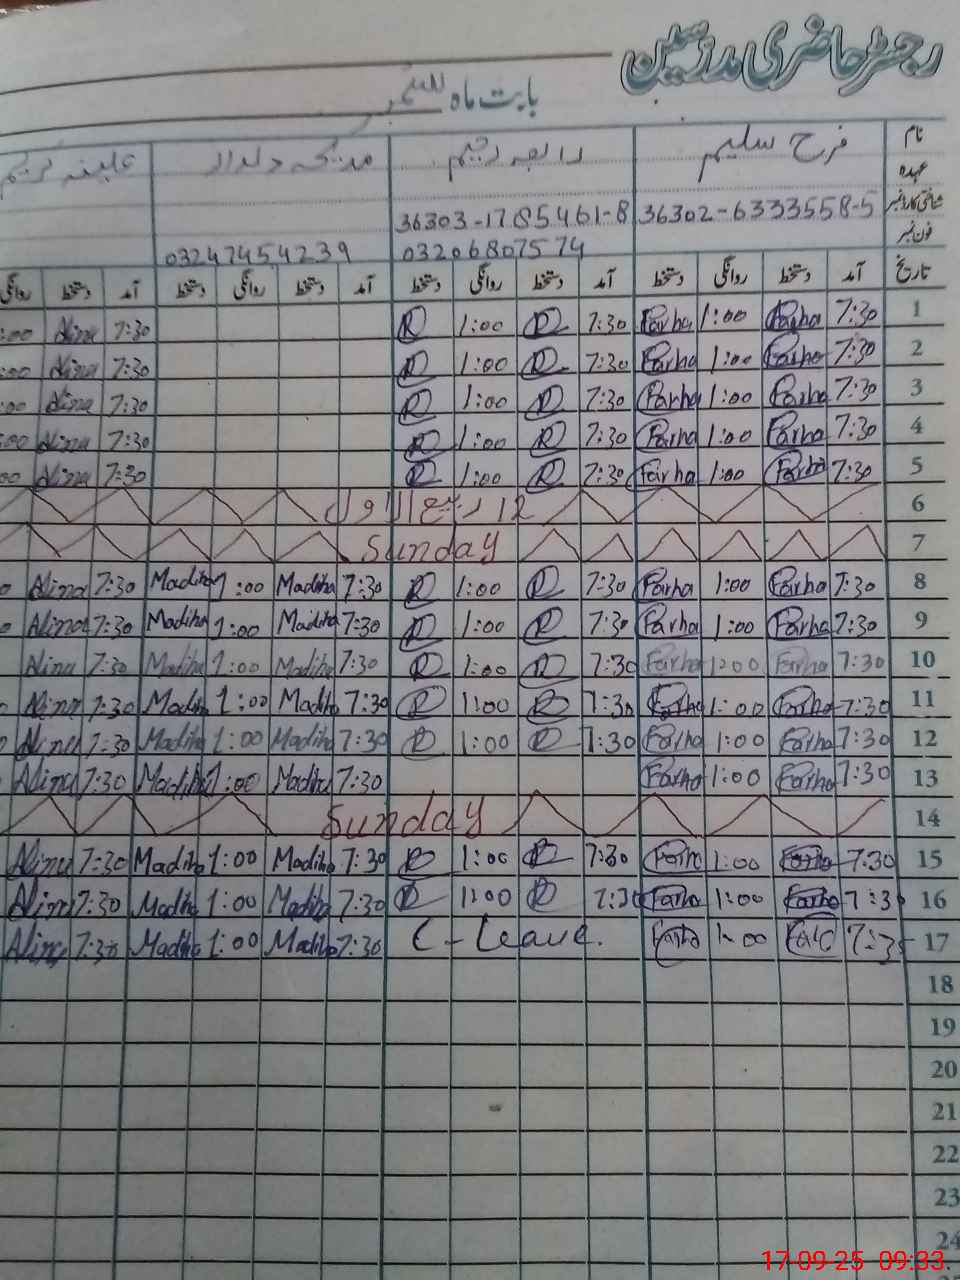 رجسٹر حاضری مدرسین
بابت ماہ ستمبر
نام فرح سلیم رابعہ رحیم مدیحہ دلدار علینہ کریم
عہدہ
شناختی کارڈ نمبر 36302-6333558-5 36303-1785461-8
فون نمبر 03206807574 03247454239
تاریخ آمد دستخط روانگی دستخط آمد دستخط روانگی دستخط آمد دستخط روانگی دستخط آمد دستخط روانگی
1 7:30 Farha 1:00 Farha 7:30 R 1:00 R 7:30 Alina :00
2 7:30 Farha 1:00 Farha 7:30 R 1:00 R 7:30 Alina :00
3 7:30 Farha 1:00 Farha 7:30 R 1:00 R 7:30 Alina :00
4 7:30 Farha 1:00 Farha 7:30 R 1:00 R 7:30 Alina :00
5 7:30 Farha 1:00 Farha 7:30 R 1:00 R 7:30 Alina 00
6 12 ربیع الاول
7 Sunday
8 7:30 Farha 1:00 Farha 7:30 R 1:00 R 7:30 Madiha 1:00 Madiha 7:30 Alina 0
9 7:30 Farha 1:00 Farha 7:30 R 1:00 R 7:30 Madiha 1:00 Madiha 7:30 Alina 0
10 7:30 Farha 1:00 Farha 7:30 R 1:00 R 7:30 Madiha 1:00 Madiha 7:30 Alina
11 7:30 Farha 1:00 Farha 7:30 R 1:00 R 7:30 Madiha 1:00 Madiha 7:30 Alina 0
12 7:30 Farha 1:00 Farha 7:30 R 1:00 R 7:30 Madiha 1:00 Madiha 7:30 Alina 0
13 7:30 Farha 1:00 Farha 7:30 Madiha 1:00 Madiha 7:30 Alina
14 Sunday
15 7:30 Farha 1:00 Farha 7:30 R 1:00 R 7:30 Madiha 1:00 Madiha 7:30 Alina
16 7:30 Farha 1:00 Farha 7:30 R 1:00 R 7:30 Madiha 1:00 Madiha 7:30 Alina
17 7:30 Farha 1:00 Farha C-Leave. 7:30 Madiha 1:00 Madiha 7:30 Alina
18
19
20
21
22
23
24
17-09-25 09:33